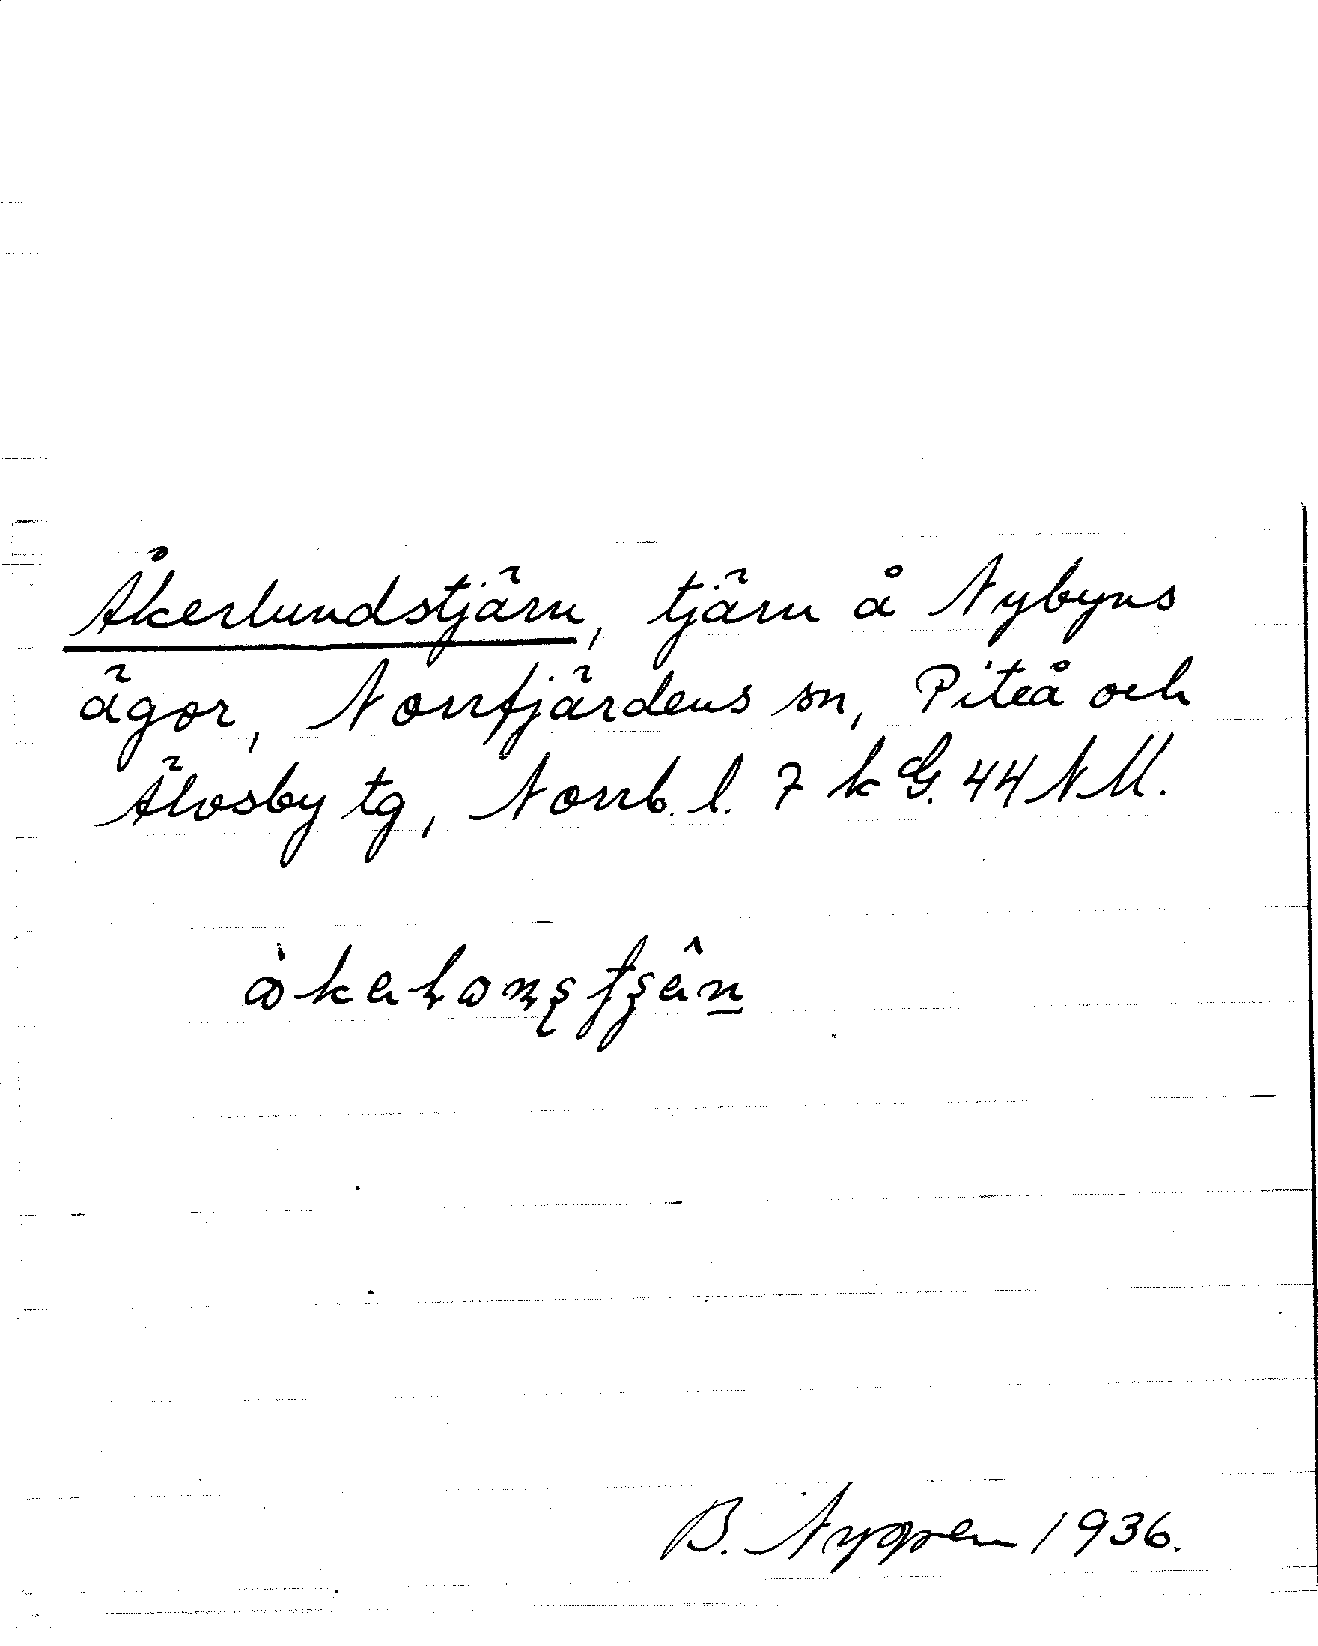 Åkerlundstjärn, tjärn å Nybyns
ägor, Norrfjärdens sn, Piteå och
Älvsby tg, Norrb. l. 7 k G. 44 N M.
B. Nygren 1936.